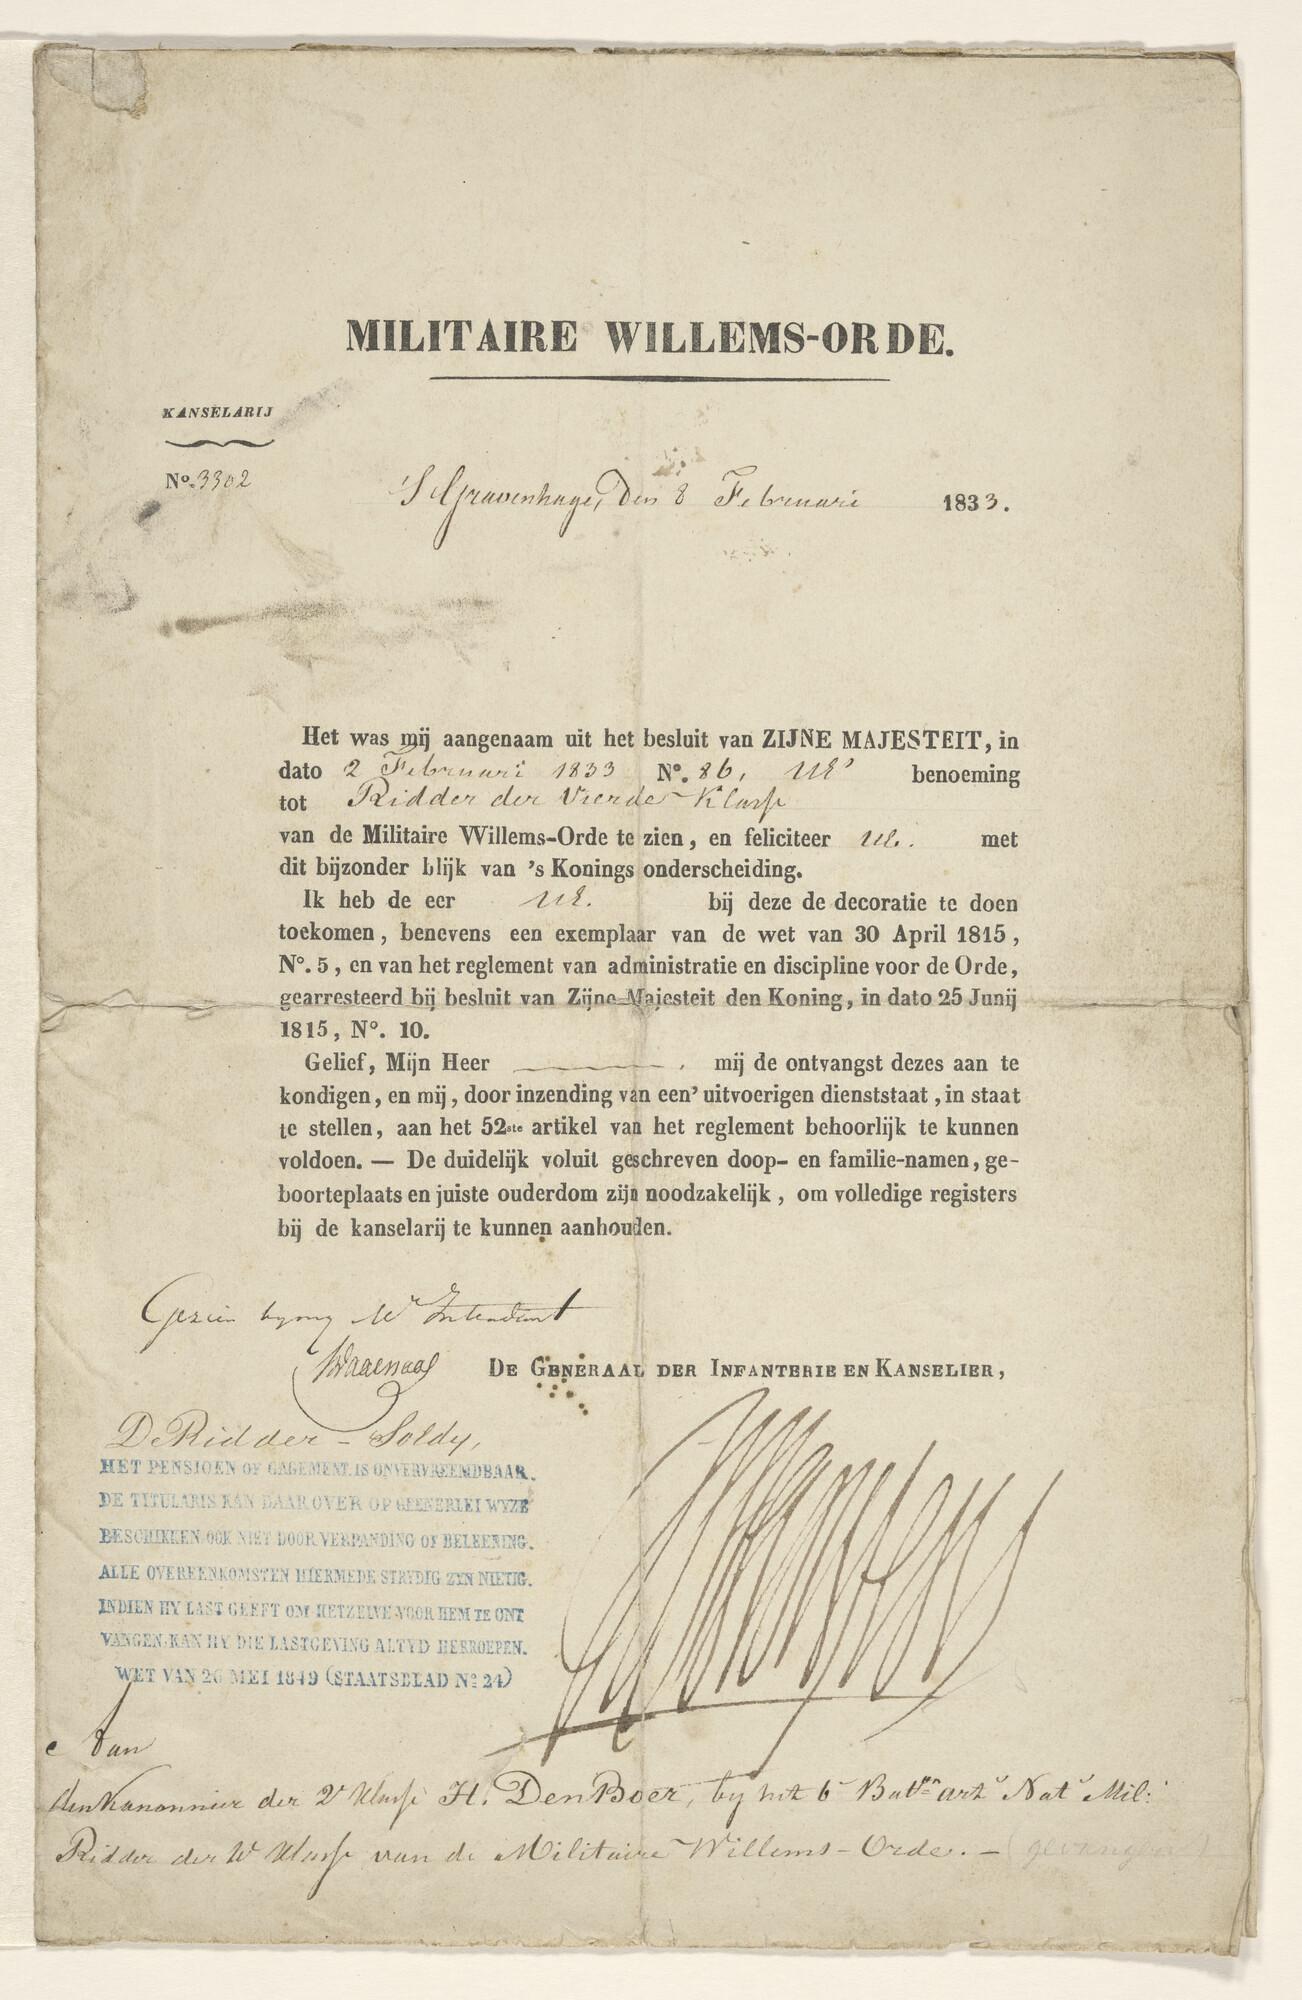 MILITAIRE WILLEMS-ORDE.
KANSELARIJ
No. 3302
's Gravenhage, den 8 Februari 1833.
Het was mij aangenaam uit het besluit van ZIJNE MAJESTEIT, in
dato 2 Februari 1833 No. 86, UE' benoeming
tot Ridder der Vierde Klasse
van de Militaire Willems-Orde te zien, en feliciteer UE. met
dit bijzonder blijk van 's Konings onderscheiding.
Ik heb de eer UE. bij deze de decoratie te doen
toekomen, benevens een exemplaar van de wet van 30 April 1815,
No. 5, en van het reglement van administratie en discipline voor de Orde,
gearresteerd bij besluit van Zijne Majesteit den Koning, in dato 25 Junij
1815, No. 10.
Gelief, Mijn Heer mij de ontvangst dezes aan te
kondigen, en mij, door inzending van een' uitvoerigen dienststaat, in staat
te stellen, aan het 52ste artikel van het reglement behoorlijk te kunnen
voldoen. — De duidelijk voluit geschreven doop- en familie-namen, ge-
boorteplaats en juiste ouderdom zijn noodzakelijk, om volledige registers
bij de kanselarij te kunnen aanhouden.
Gezien by my Intendant
DE GENERAAL DER INFANTERIE EN KANSELIER,
D Ridder - Soldy,
HET PENSIOEN OF GAGEMENT IS ONVERVREEMDBAAR.
DE TITULARIS KAN DAAR OVER OP GEENERLEI WYZE
BESCHIKKEN OOK NIET DOOR VERPANDING OF BELEENING.
ALLE OVEREENKOMSTEN HIERMEDE STRYDIG ZYN NIETIG.
INDIEN HY LAST GEEFT OM HETZELVE VOOR HEM TE ONT
VANGEN KAN HY DIE LASTGEVING ALTYD HERROEPEN.
WET VAN 26 MEI 1849 (STAATSBLAD No 24)
Aan
den Kanonnier der 2e Klasse H. Den Boer, by het 6e Batn artie Nate Mil:
Ridder der 4e Klasse van de Militaire Willems-Orde. —